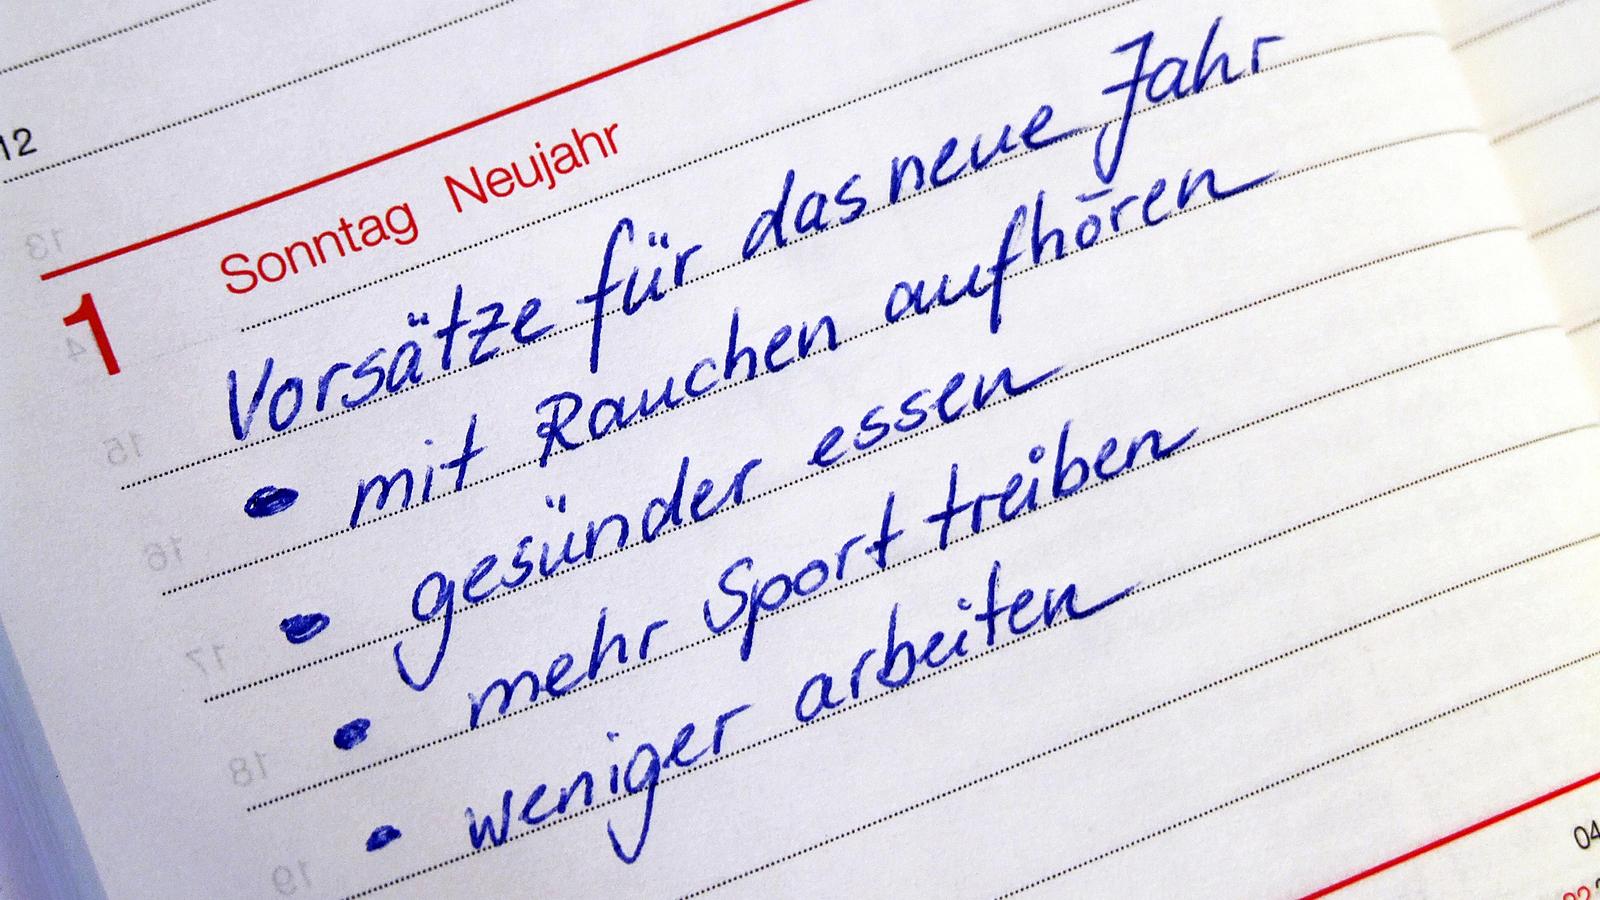 12
Sonntag Neujahr
1
Vorsätze für das neue Jahr
• mit Rauchen aufhören
• gesünder essen
• mehr Sport treiben
• weniger arbeiten
13
14
15
16
17
18
19
04